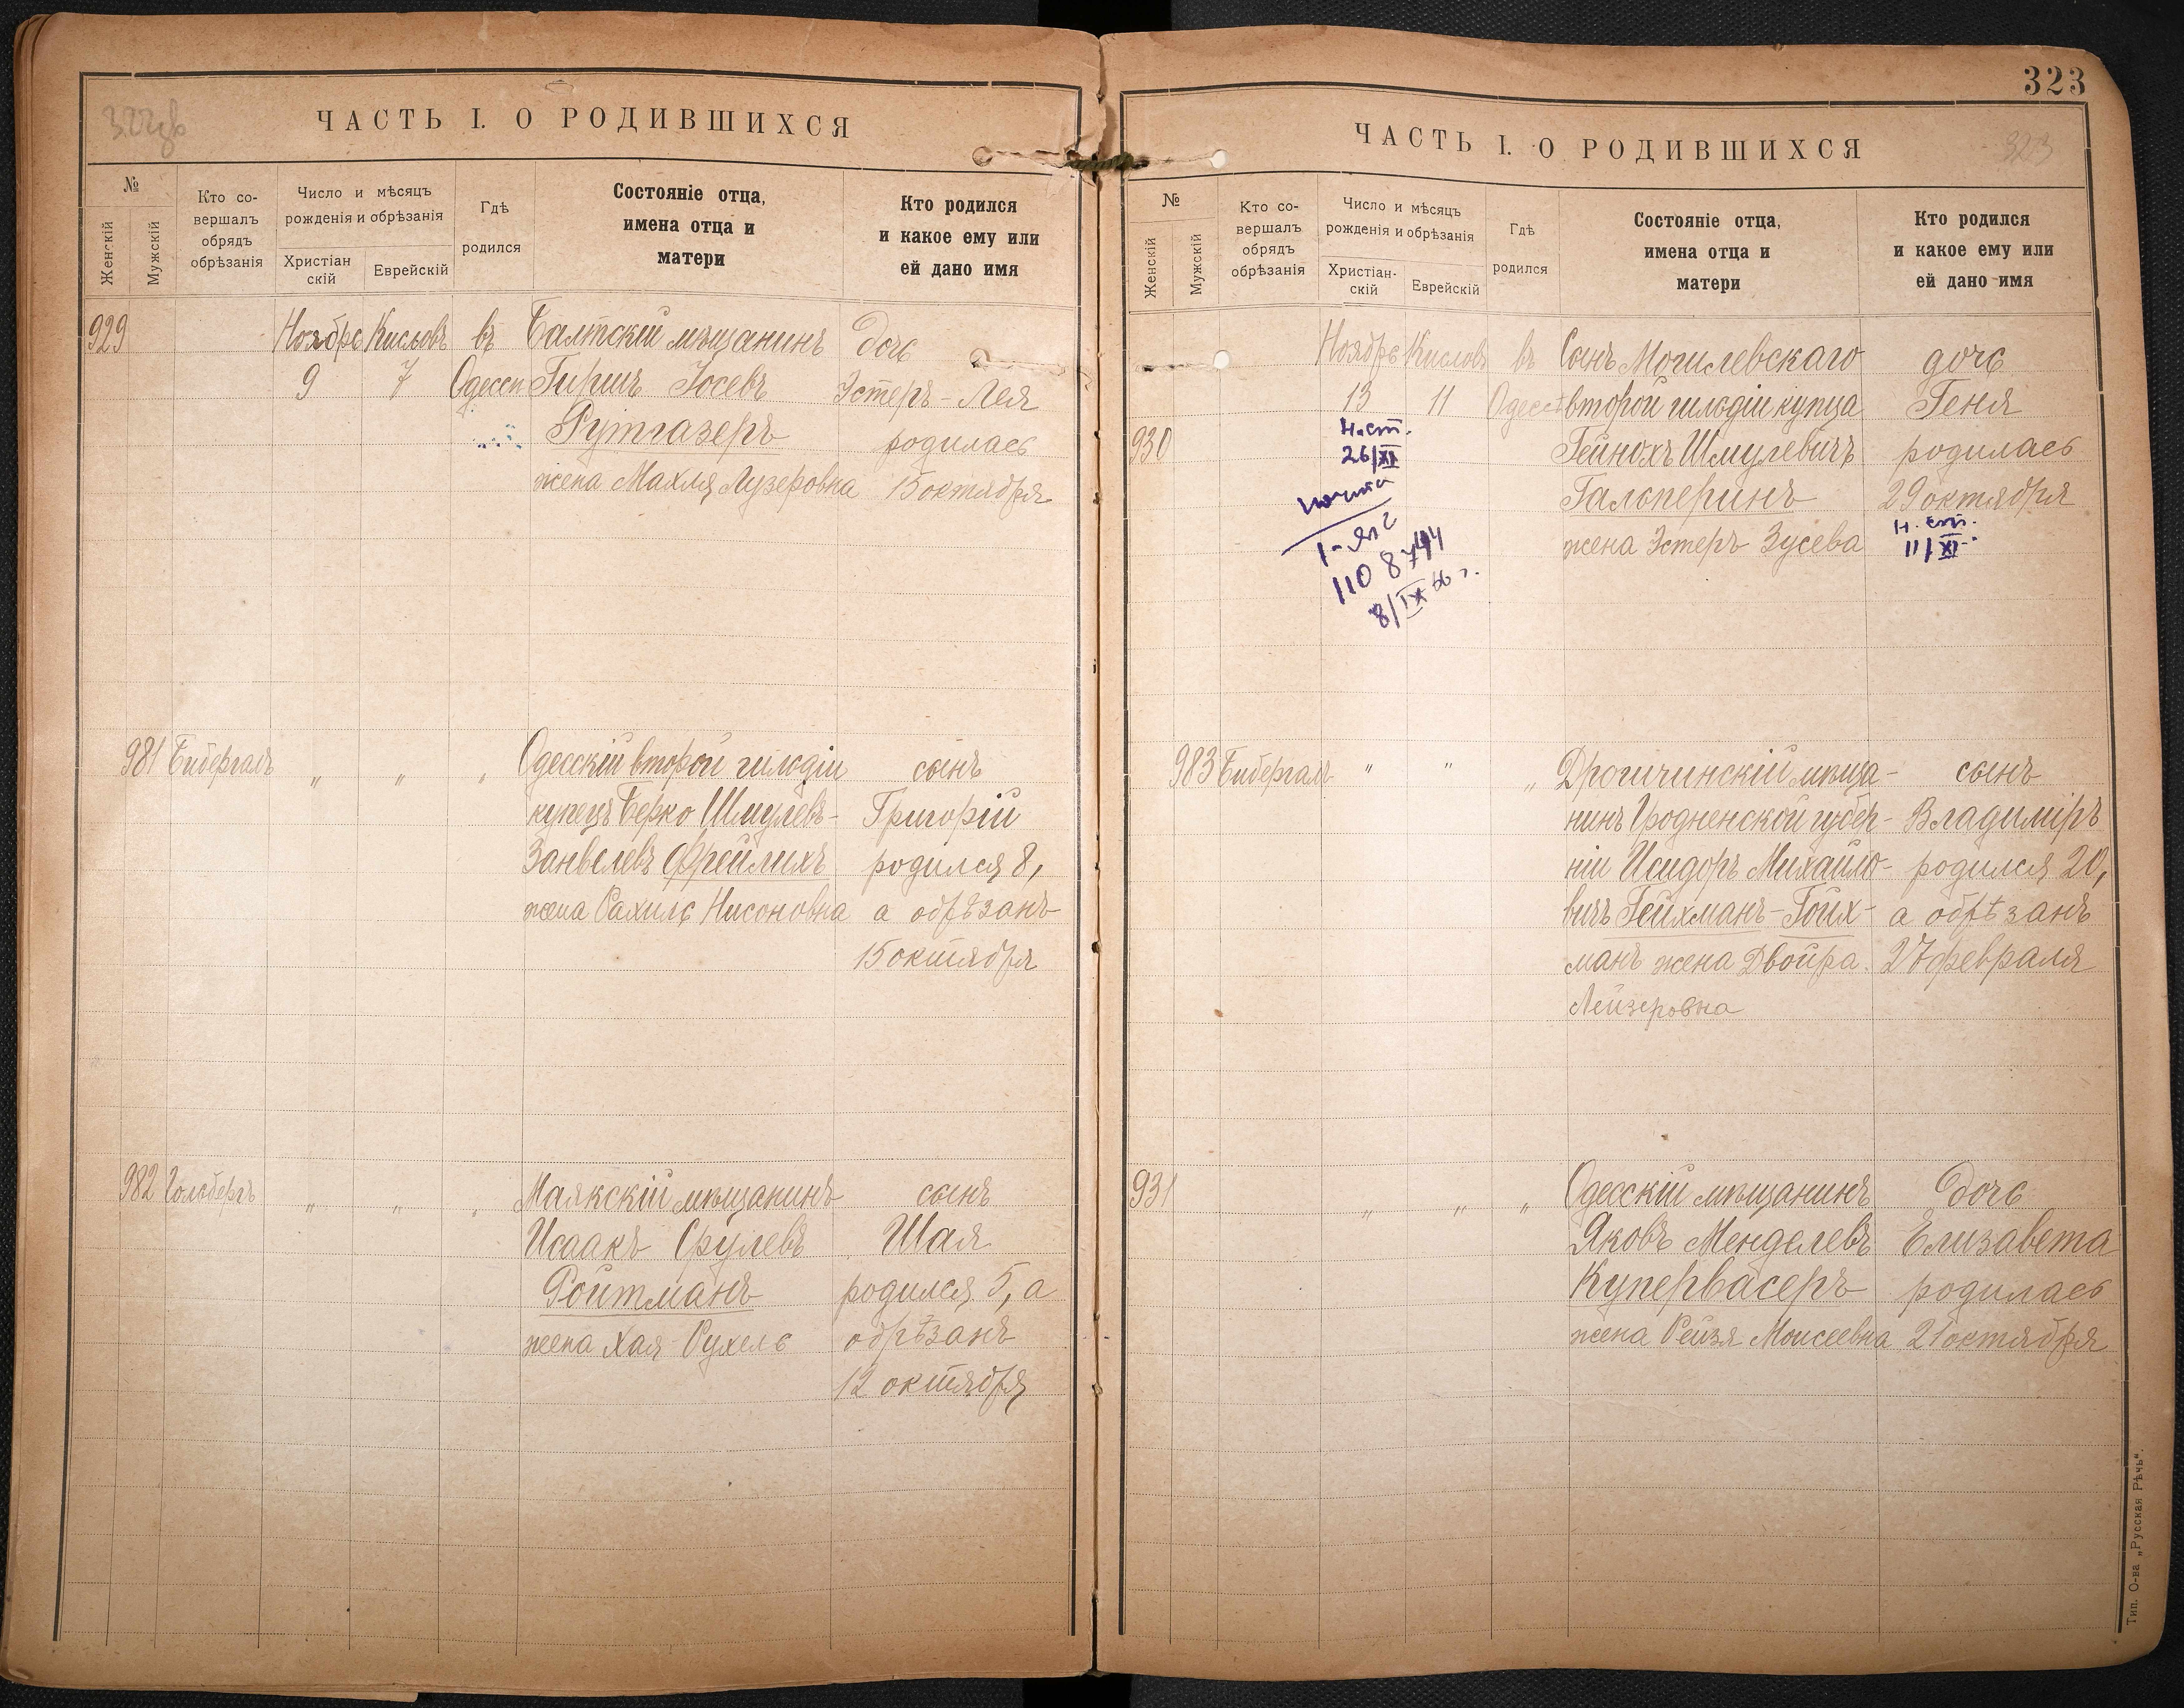 322об
ЧАСТЬ I. О РОДИВШИХСЯ
№
Женскій
Мужскій
Кто со-
вершалъ
обрядъ
обрѣзанія
Число и мѣсяцъ
рожденія и обрѣзанія
Христіан
скій
Еврейскій
Гдѣ
родился
Состояніе отца,
имена отца и
матери
Кто родился
и какое ему или
ей дано имя
929 Ноябрь Кисловъ въ Балтскій мѣщанинъ дочь
9 7 Одессѣ Гиршъ Іосевъ Эстеръ-Лея
Рутгазеръ родилась
жена Махля Лузеровна 15 октября
981 Бибергаль " " " Одесскій второй гильдіи сынъ
купецъ Берко Шмулевъ- Григорій
Занвелевъ Фрейлихъ родился 8,
жена Рахиль Нисоновна а обрѣзанъ
15 октября
982 Гольбергъ " " " Маякскій мѣщанинъ сынъ
Исаакъ Срулевъ Шая
Ройтманъ родился 5, а
жена Хая-Рухель обрѣзанъ
12 октября
323
323
ЧАСТЬ I. О РОДИВШИХСЯ
№
Женскій
Мужскій
Кто со-
вершалъ
обрядъ
обрѣзанія
Число и мѣсяцъ
рожденія и обрѣзанія
Христіан-
скій
Еврейскій
Гдѣ
родился
Состояніе отца,
имена отца и
матери
Кто родился
и какое ему или
ей дано имя
Ноябрь Кисловъ въ Сынъ Могилевскаго дочь
13 11 Одессѣ второй гильдіи купца Геня
930 Н.ст. Гейнохъ Шмулевичъ родилась
26/XI
Гальперинъ 29 октября
жена Эстеръ Зусева н. ст.
11/XI
110 8744
8/IX 46 г.
983 Бибергаль " " " Дрогичинскій мѣща- сынъ
нинъ Гродненской губер- Владиміръ
ніи Исидоръ Михайло- родился 20,
вичъ Гейхманъ-Гойх- а обрѣзанъ
манъ жена Двойра 27 февраля
Лейзеровна
931 " " " Одесскій мѣщанинъ дочь
Яковъ Менделевъ Елизавета
Купервасеръ родилась
жена Рейзя Моисеевна 21 октября
Тип. О-ва „Русская Рѣчь“.